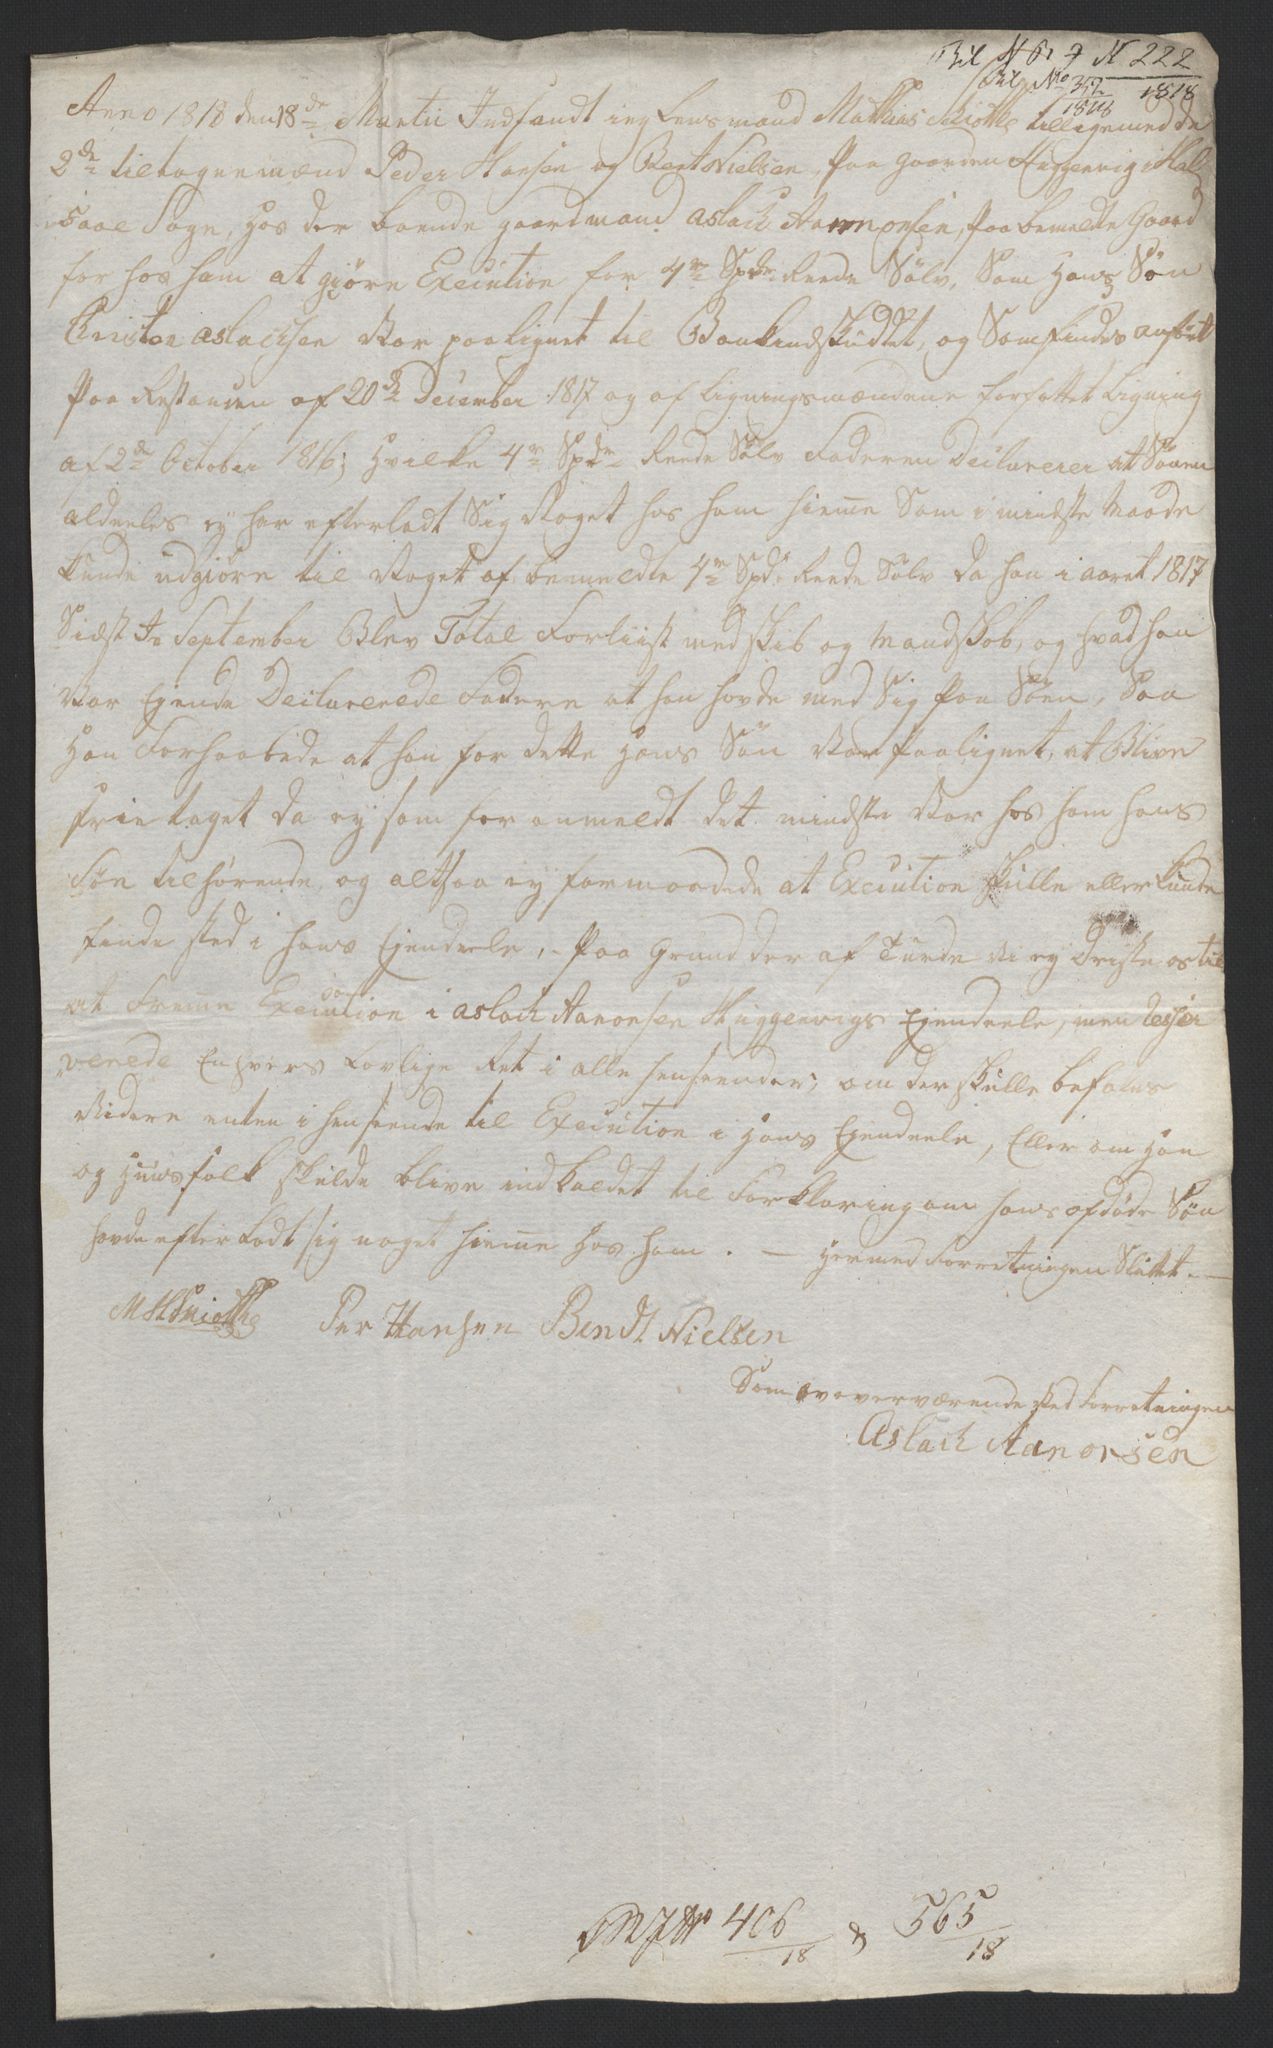 Bil N 6 N 222
1818
Bil No 352
1818
Anno 1818 den 18de Martii Indfandt ieg Lensmand Mathias Kiøtte tilligemed de
2de tiltagne mænd Peder Hansen og Bent Nielsen, paa gaarden Huggenvig i Hal
saae Sogn, hos der boende gaardmand Aslach Aanonsen, paa bemeldte Gaard
for hos ham at gjøre Execution for 4re Spdr Reede Sølv, Som Hans Søn
Christen Aslachsen var paalignet til Bankindskuddet, og Som findes anført
Paa Restancen af 20de December 1817 og af Ligningsmændene forfattet Ligning
af 2de October 1816; Hvilke 4re Spdr Reede Sølv Faderen Declarerer at Sønnen
aldeeles ey har efterladt Sig Noget hos ham hiemme Som i mindste Maade
kunde udgjøre til Noget af bemeldte 4re Spdr Reede Sølv da han i aaret 1817
Sidst I September Blev Total Forliist med skib og Mandskab, og hvad han
var Ejende Declarerede Faderen at han havde med Sig paa Søen, Saa
Han Forhaabede at han for dette Hans Søn var Paalignet, at Blive
frie taget da ey som for anmeldt det mindste var hos ham hans
Søn tilhørende, og altsaa ey formodede at Execution skulle eller kunde
finde sted i hans Ejendeele, - Paa Grund der af Turde vi ey driste os til
at Fremme Execution i Aslach Aanonsen Huggenvigs Ejendeele, men reser
verede Enhvers Lovlige Ret i alle henseender, om der skulle befales
videre enten i henseende til Execution i Hans Ejendeele, Eller om Han
og Huusfolk skulde blive indkaldet til Forklaring om hans afdøde Søn
havde efterladt sig noget hiemme hos ham. - Hermed Forretningen Sluttet. -
Per Hansen Bendt Nielsen
Som overværende ved Forretningen
Aslach Aanonsen
No 406/18 & 565/18